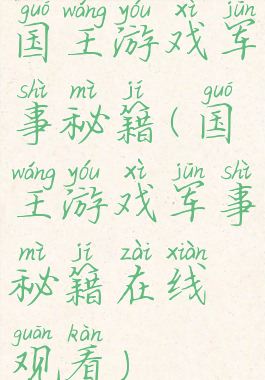 guó wáng yóu xì jūn
国王游戏军
shì mì jí guó
事秘籍(国
wáng yóu xì jūn shì
王游戏军事
mì jí zài xiàn
秘籍在线
guān kàn
观看)